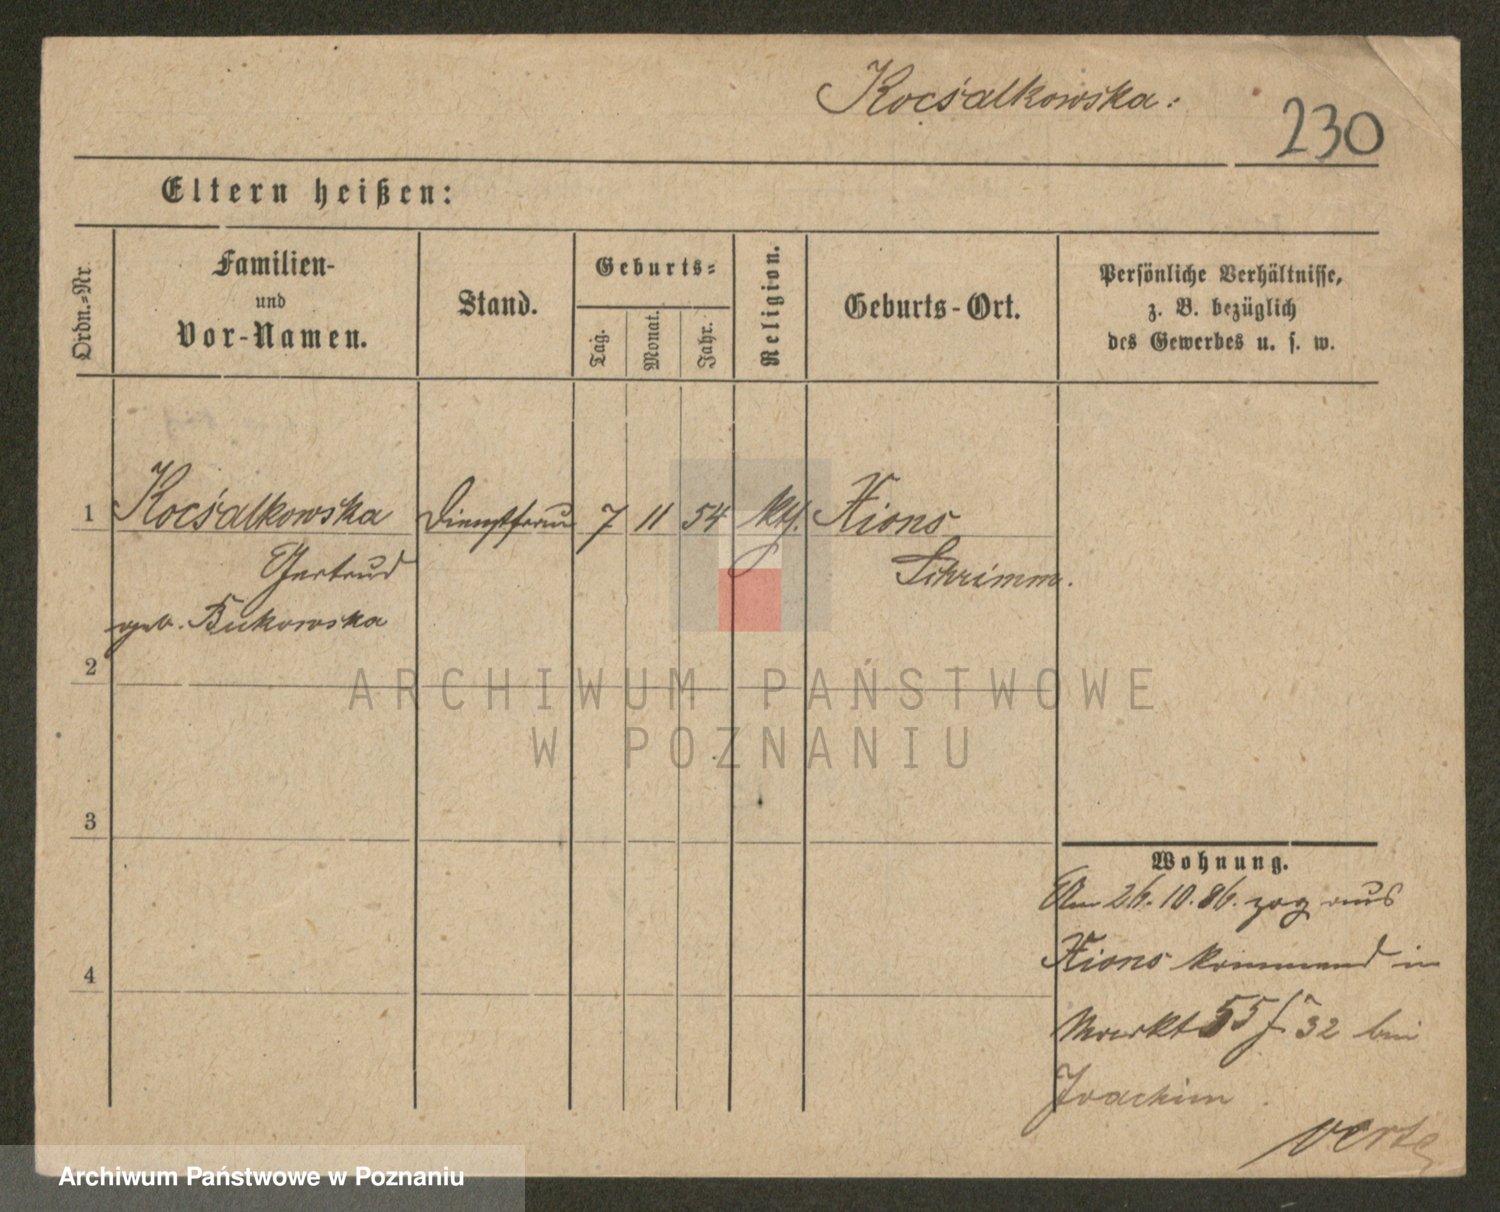 Kocśalkowska:
230
Eltern heißen:
Ordn.-Nr
Familien-
und
Vor-Namen.
Stand.
Geburts-
Tag.
Monat.
Jahr.
Religion.
Geburts-Ort.
Persönliche Verhältnisse,
z. B. bezüglich
des Gewerbes u. s. w.
1 Kocśalkowska Dienstfrau 7 11 54 kth. Xions
Gertrud Schrimm.
geb. Bukowska
2
3
4
ARCHIWUM PAŃSTWOWE
W POZNANIU
Wohnung.
Am 26.10.86. zog aus
Xions kommend in
Markt 55/ 32 bei
Joachim
verte
Archiwum Państwowe w Poznaniu